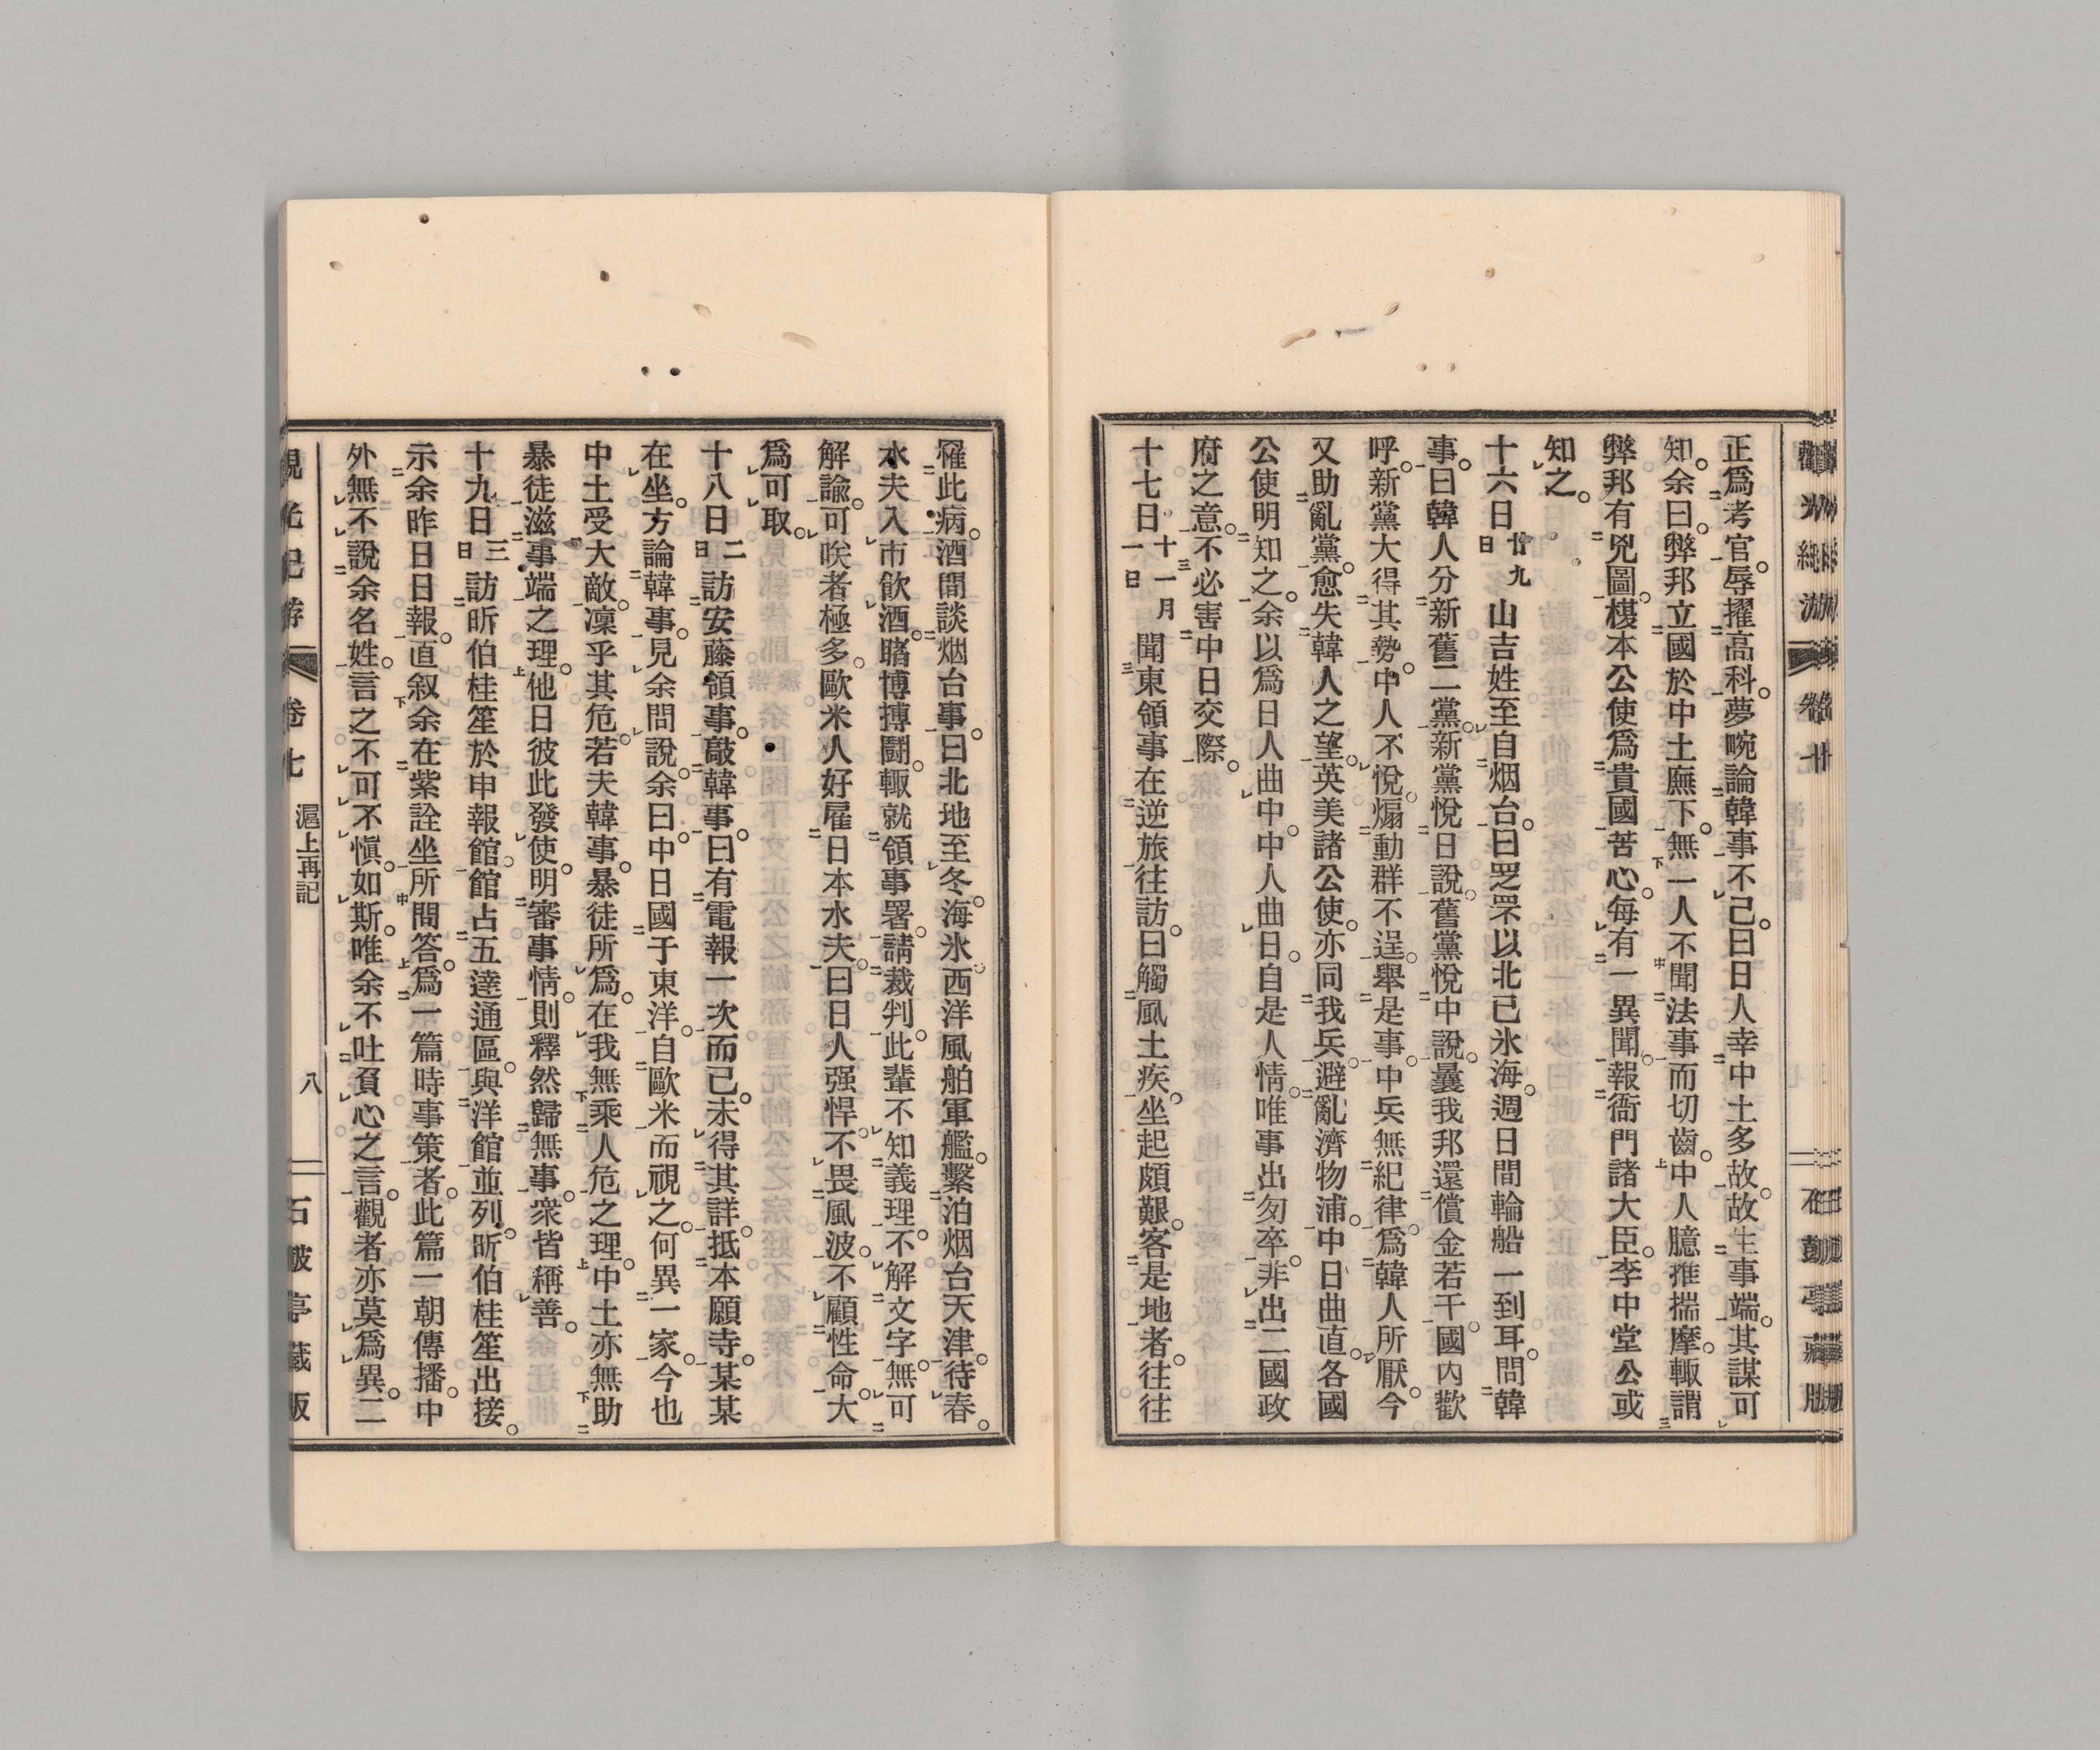 正爲考官。辱擢高科。夢畹論韓事不己。曰日人幸中土多故。故生事端。其謀可
知。余曰。弊邦立國於中土廡下。無一人不聞法事而切齒。中人臆推揣摩。輙謂
弊邦有兇圖。榎本公使爲貴國苦心。每有一異聞。報衙門諸大臣。李中堂公或
知之。
十六日廿九日山吉姓至自烟台。曰罡罘以北已氷海。週日間輪船一到耳。問韓
事。曰韓人分新舊二黨。新黨悅日說。舊黨悅中說。曩我邦還償金若干。國內歡
呼。新黨大得其勢。中人不悅。煽動群不逞。舉是事。中兵無紀律。爲韓人所厭。今
又助亂黨。愈失韓人之望。英美諸公使。亦同我兵。避亂濟物浦。中日曲直。各國
公使明知之。余以爲日人曲中。中人曲日。自是人情。唯事出匆卒。非出二國政
府之意。不必害中日交際。
十七日十一月一日聞東領事在逆旅。往訪。曰觸風土疾。坐起頗艱。客是地者。往往
罹此病。酒間談烟台事。曰北地至冬。海氷。西洋風舶軍艦。繫泊烟台天津。待春。
水夫入市飲酒。賭博搏鬪。輙就領事署。請裁判。此輩不知義理。不解文字。無可
解諭。可唉者極多。歐米人好雇日本水夫。曰日人强悍。不畏風波。不顧性命。大
爲可取。
十八日二日訪安藤領事。敲韓事。曰有電報一次而已。未得其詳。抵本願寺。某某
在坐。方論韓事。見余問說。余曰。中日國于東洋。自歐米而視之。何異一家。今也
中土受大敵。凜乎其危。若夫韓事。暴徒所爲。在我無乘人危之理。中土亦無助
暴徒滋事端之理。他日彼此發使。明審事情。則釋然歸無事。衆皆稱善。
十九日三日訪昕伯桂笙於申報館。館占五達通區。與洋館並列。昕伯桂笙出接。
示余昨日日報。直叙余在紫詮坐所問答。爲一篇時事策者。此篇一朝傳播。中
外無不說余名姓。言之不可不愼。如斯。唯余不吐負心之言。觀者亦莫爲異。二
觀光記游 卷七 滬上再記 八 石皷亭藏版